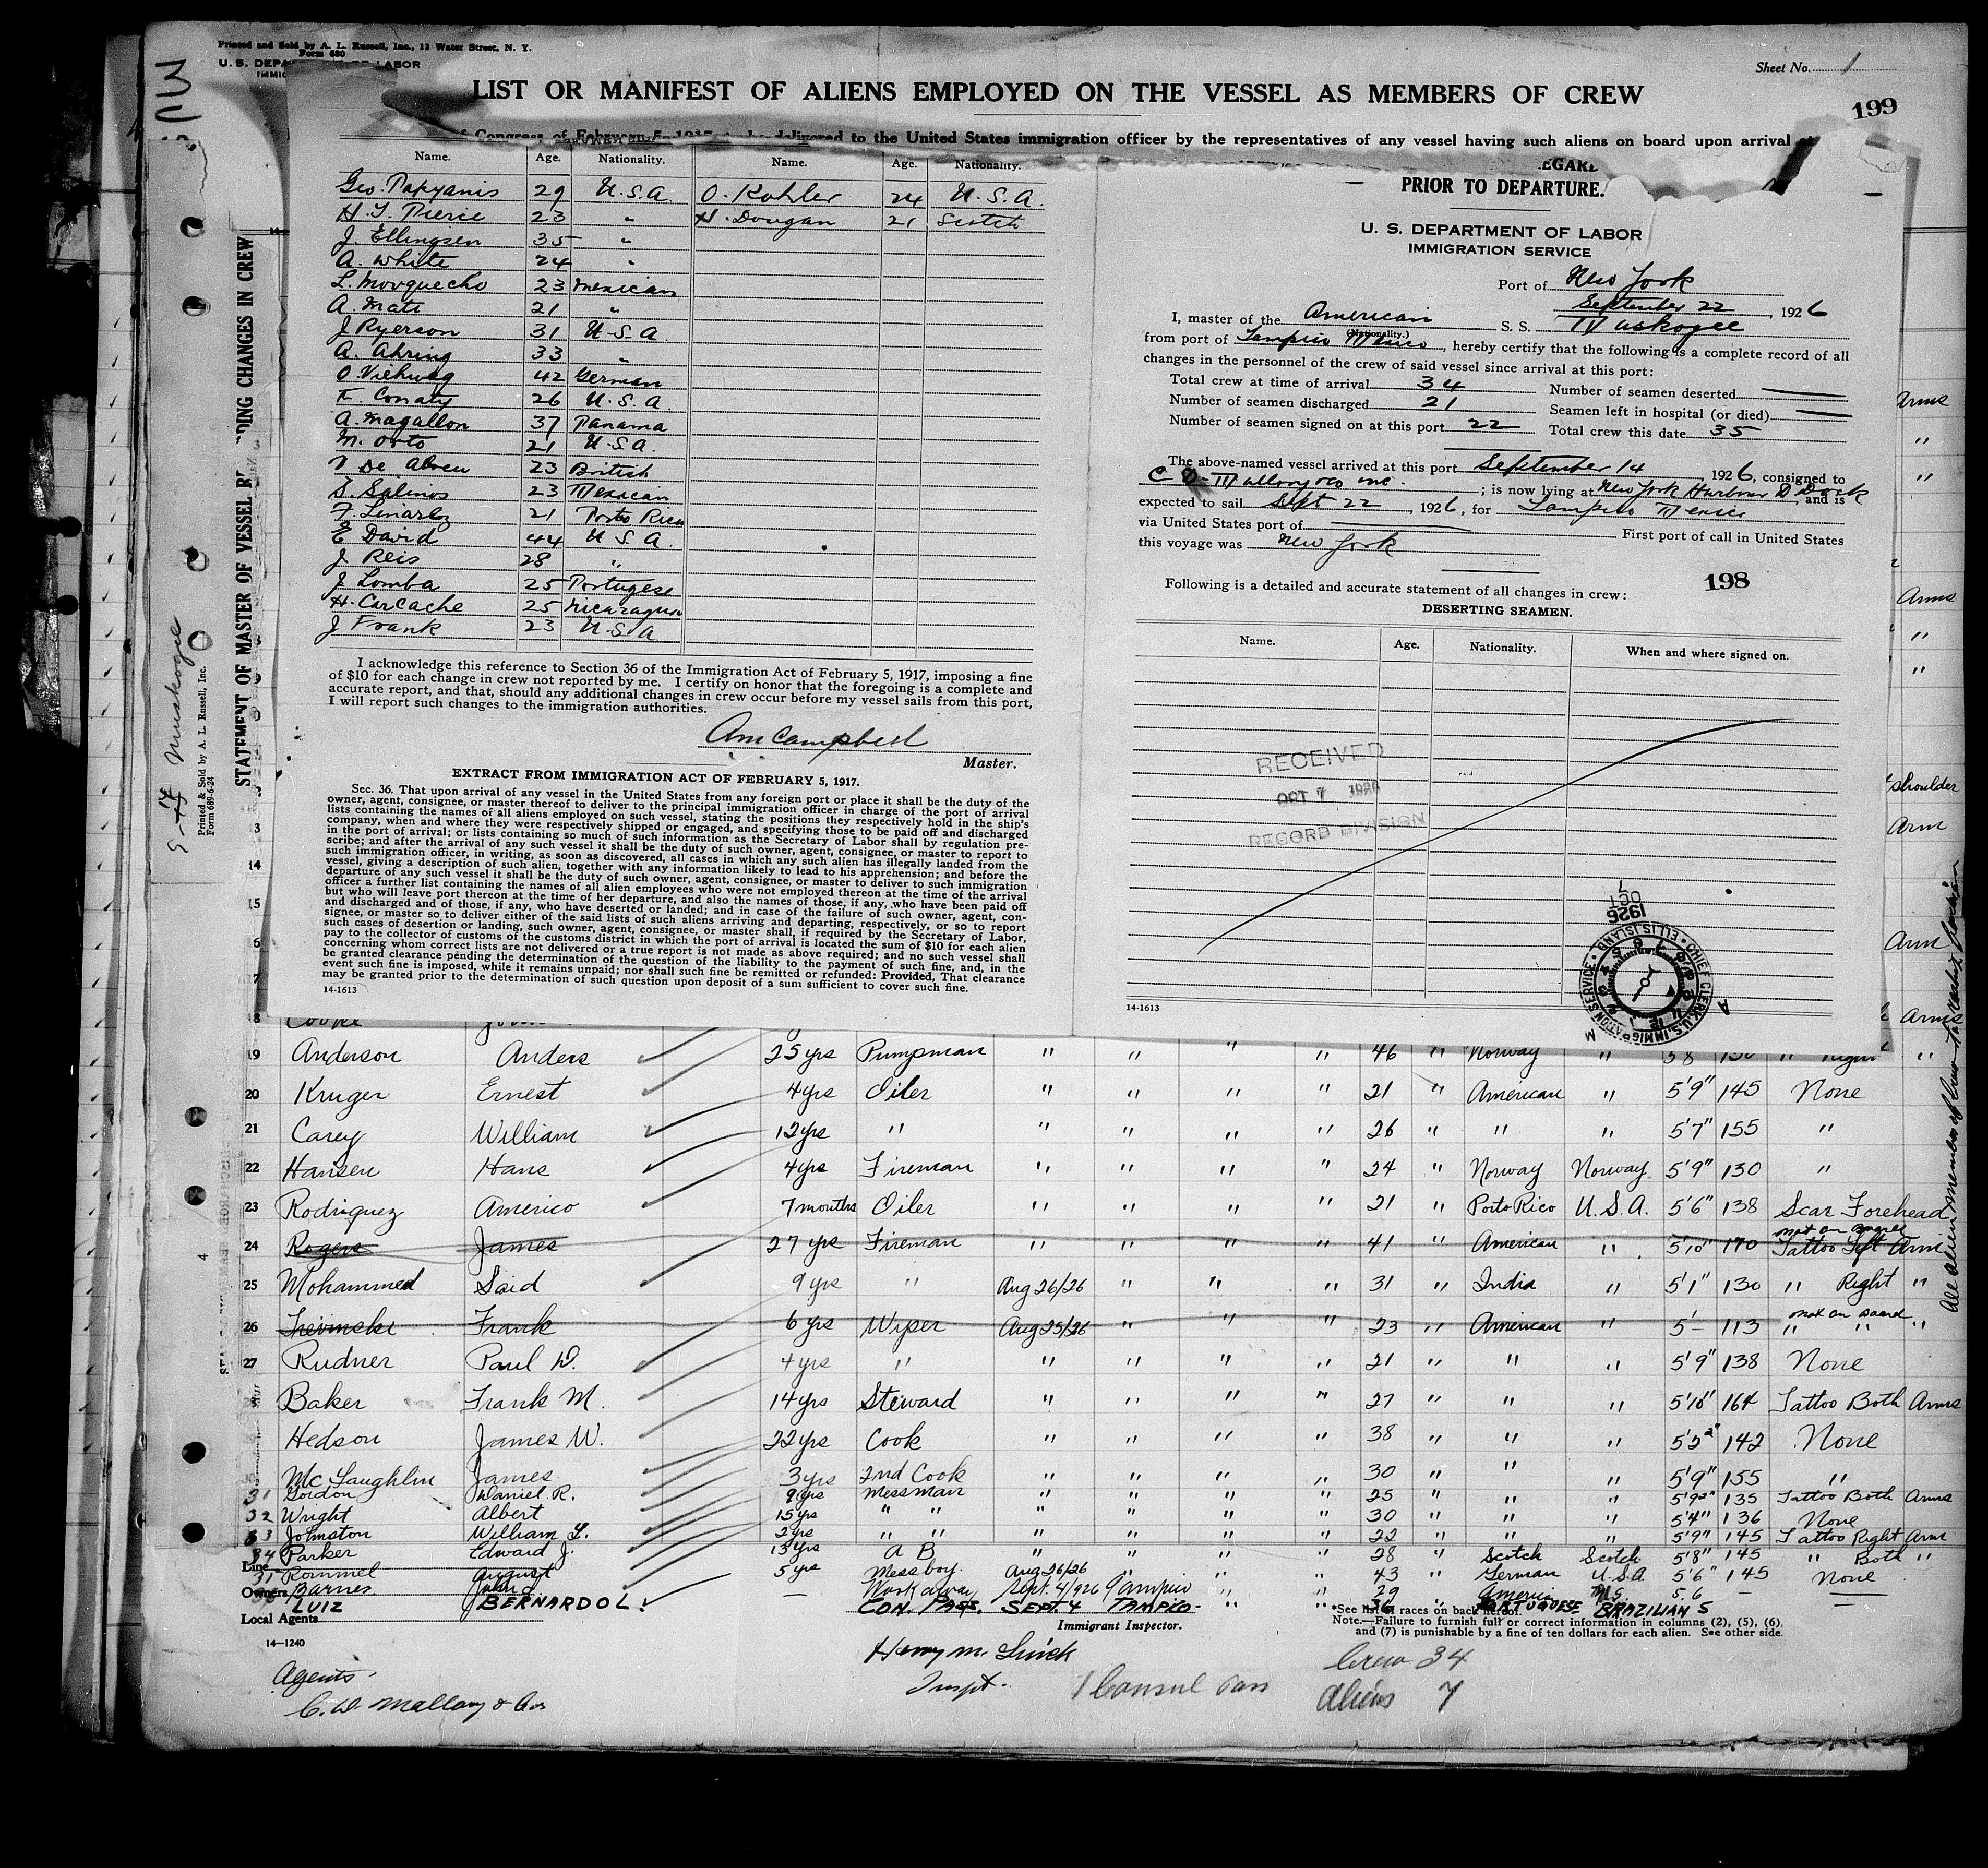 Printed and Sold by A. L. Russell, Inc., 12 Water Street, N. Y.
Form 680
U. S. DEPARTMENT OF LABOR
Sheet No. 1
LIST OR MANIFEST OF ALIENS EMPLOYED ON THE VESSEL AS MEMBERS OF CREW
199
of Congress of February 5, 1917, to be delivered to the United States immigration officer by the representatives of any vessel having such aliens on board upon arrival
STATEMENT OF MASTER OF VESSEL REGARDING CHANGES IN CREW
Printed & Sold by A. L. Russell, Inc.
Form 689-6-24
Muskogee
Name. Age. Nationality. Name. Age. Nationality.
Geo. Papyanis 29 U.S.A. O. Kohler 24 U.S.A.
H. J. Pierie 23 " H. Dougan 21 Scotch
J. Ellingsen 35 "
A. White 24 "
L. Movquecho 23 Mexican
A. Mate 21 "
J Ryerson 31 U.S.A.
A. Ahring 33 "
O Viehweg 42 German
F. Conaty 26 U.S.A.
A. Magallon 37 Panama
M. Orto 21 U.S.A.
V De Abreu 23 British
S. Salinos 23 Mexican
F. Linarez 21 Porto Rico
E David 44 U S A.
J Reis 28 "
J Lomba 25 Portugese
H. Carcache 25 Nicaraguan
J Frank 23 U.S.A
I acknowledge this reference to Section 36 of the Immigration Act of February 5, 1917, imposing a fine
of $10 for each change in crew not reported by me. I certify on honor that the foregoing is a complete and
accurate report, and that, should any additional changes in crew occur before my vessel sails from this port,
I will report such changes to the immigration authorities.
Am Campbell
Master.
EXTRACT FROM IMMIGRATION ACT OF FEBRUARY 5, 1917.
Sec. 36. That upon arrival of any vessel in the United States from any foreign port or place it shall be the duty of the
owner, agent, consignee, or master thereof to deliver to the principal immigration officer in charge of the port of arrival
lists containing the names of all aliens employed on such vessel, stating the positions they respectively hold in the ship's
company, when and where they were respectively shipped or engaged, and specifying those to be paid off and discharged
in the port of arrival; or lists containing so much of such information as the Secretary of Labor shall by regulation pre-
scribe; and after the arrival of any such vessel it shall be the duty of such owner, agent, consignee, or master to report to
such immigration officer, in writing, as soon as discovered, all cases in which any such alien has illegally landed from the
vessel, giving a description of such alien, together with any information likely to lead to his apprehension; and before the
departure of any such vessel it shall be the duty of such owner, agent, consignee, or master to deliver to such immigration
officer a further list containing the names of all alien employees who were not employed thereon at the time of the arrival
but who will leave port thereon at the time of her departure, and also the names of those, if any, who have been paid off
and discharged and of those, if any, who have deserted or landed; and in case of the failure of such owner, agent, con-
signee, or master so to deliver either of the said lists of such aliens arriving and departing, respectively, or so to report
such cases of desertion or landing, such owner, agent, consignee, or master shall, if required by the Secretary of Labor,
pay to the collector of customs of the customs district in which the port of arrival is located the sum of $10 for each alien
concerning whom correct lists are not delivered or a true report is not made as above required; and no such vessel shall
be granted clearance pending the determination of the question of the liability to the payment of such fine, and, in the
event such fine is imposed, while it remains unpaid; nor shall such fine be remitted or refunded: Provided, That clearance
may be granted prior to the determination of such question upon deposit of a sum sufficient to cover such fine.
14-1613
PRIOR TO DEPARTURE.
U. S. DEPARTMENT OF LABOR
IMMIGRATION SERVICE
Port of New York
September 22, 1926
I, master of the American S. S. Muskogee
(Nationality.)
from port of Tampico Mexico, hereby certify that the following is a complete record of all
changes in the personnel of the crew of said vessel since arrival at this port:
Total crew at time of arrival 34 Number of seamen deserted
Number of seamen discharged 21 Seamen left in hospital (or died)
Number of seamen signed on at this port 22 Total crew this date 35
The above-named vessel arrived at this port September 14 1926, consigned to
C D Mallory & Co Inc.; is now lying at New York Harbor D Dock, and is
expected to sail Sept 22, 1926, for Tampico Mexico
via United States port of First port of call in United States
this voyage was New York
Following is a detailed and accurate statement of all changes in crew: 198
DESERTING SEAMEN.
Name. Age. Nationality. When and where signed on.
RECEIVED
OCT 7 1926
RECORD DIVISION
1926 OCT 7
CHIEF CLERK U.S. IMMIGRATION SERVICE ELLIS ISLAND
14-1613
Arms
"
"
Arms
"
"
Shoulder
Arm
Arm
Arms
18 Cooke John
19 Anderson Anders 25 yrs Pumpman " " " " 46 " Norway " 5'8 150 " Right "
20 Kruger Ernest 4 yrs Oiler " " " " 21 " American " 5'9" 145 None
21 Carey William 12 yrs " " " " " 26 " " " 5'7" 155 "
22 Hansen Hans 4 yrs Fireman " " " " 24 " Norway Norway 5'9" 130 "
23 Rodriguez Americo 7 months Oiler " " " " 21 " Porto Rico U.S.A. 5'6" 138 Scar Forehead
24 Rogers James 27 yrs Fireman " " " " 41 " American " 5'10" 170 Tattoo Left Arm
25 Mohammed Said 9 yrs " Aug 26/26 " " " 31 " India " 5'1" 130 " Right "
not on board
26 Frank 6 yrs Wiper Aug 25/26 " " " 23 " American " 5'- 113 " " "
27 Rudner Paul D. 4 yrs " " " " " 21 " " " 5'9" 138 None
28 Baker Frank M. 14 yrs Steward " " " " 27 " " " 5'10" 164 Tattoo Both Arms
Hedson James W. 22 yrs Cook " " " " 38 " " " 5'5" 142 None
McLaughlin James 3 yrs 2nd Cook " " " " 30 " " " 5'9" 155 "
31 Gordon Daniel R. 9 yrs Messman " " " " 25 " " " 5'9" 135 Tattoo Both Arms
32 Wright Albert 15 yrs " " " " " " 30 " " " 5'4" 136 None
33 Johnston William L. 2 yrs " " " " " " 22 " " " 5'9" 145 Tattoo Right Arm
34 Parker Edward J. 13 yrs A B " " " " 28 " Scotch Scotch 5'8" 145 " Both "
Line Rommel August 5 yrs Mess boy Aug 26/26 " " " 43 " German U.S.A. 5'6" 145 None
Owners Barnes John J. Workaway Sept. 4/926 Tampico " " 29 " 5.6 —
LUIZ BERNARDO L. CON. PASS. SEPT. 4 TAMPICO " " 36 " PORTUGUESE BRAZILIAN 5
Local Agents
Immigrant Inspector.
*See list of races on back hereof.
Note.—Failure to furnish full or correct information in columns (2), (5), (6),
and (7) is punishable by a fine of ten dollars for each alien. See other side.
14—1240
Henry M.
Inspt.
1 Consul Pass
Crew 34
Aliens 7
Agents
C. D. Mallory & Co